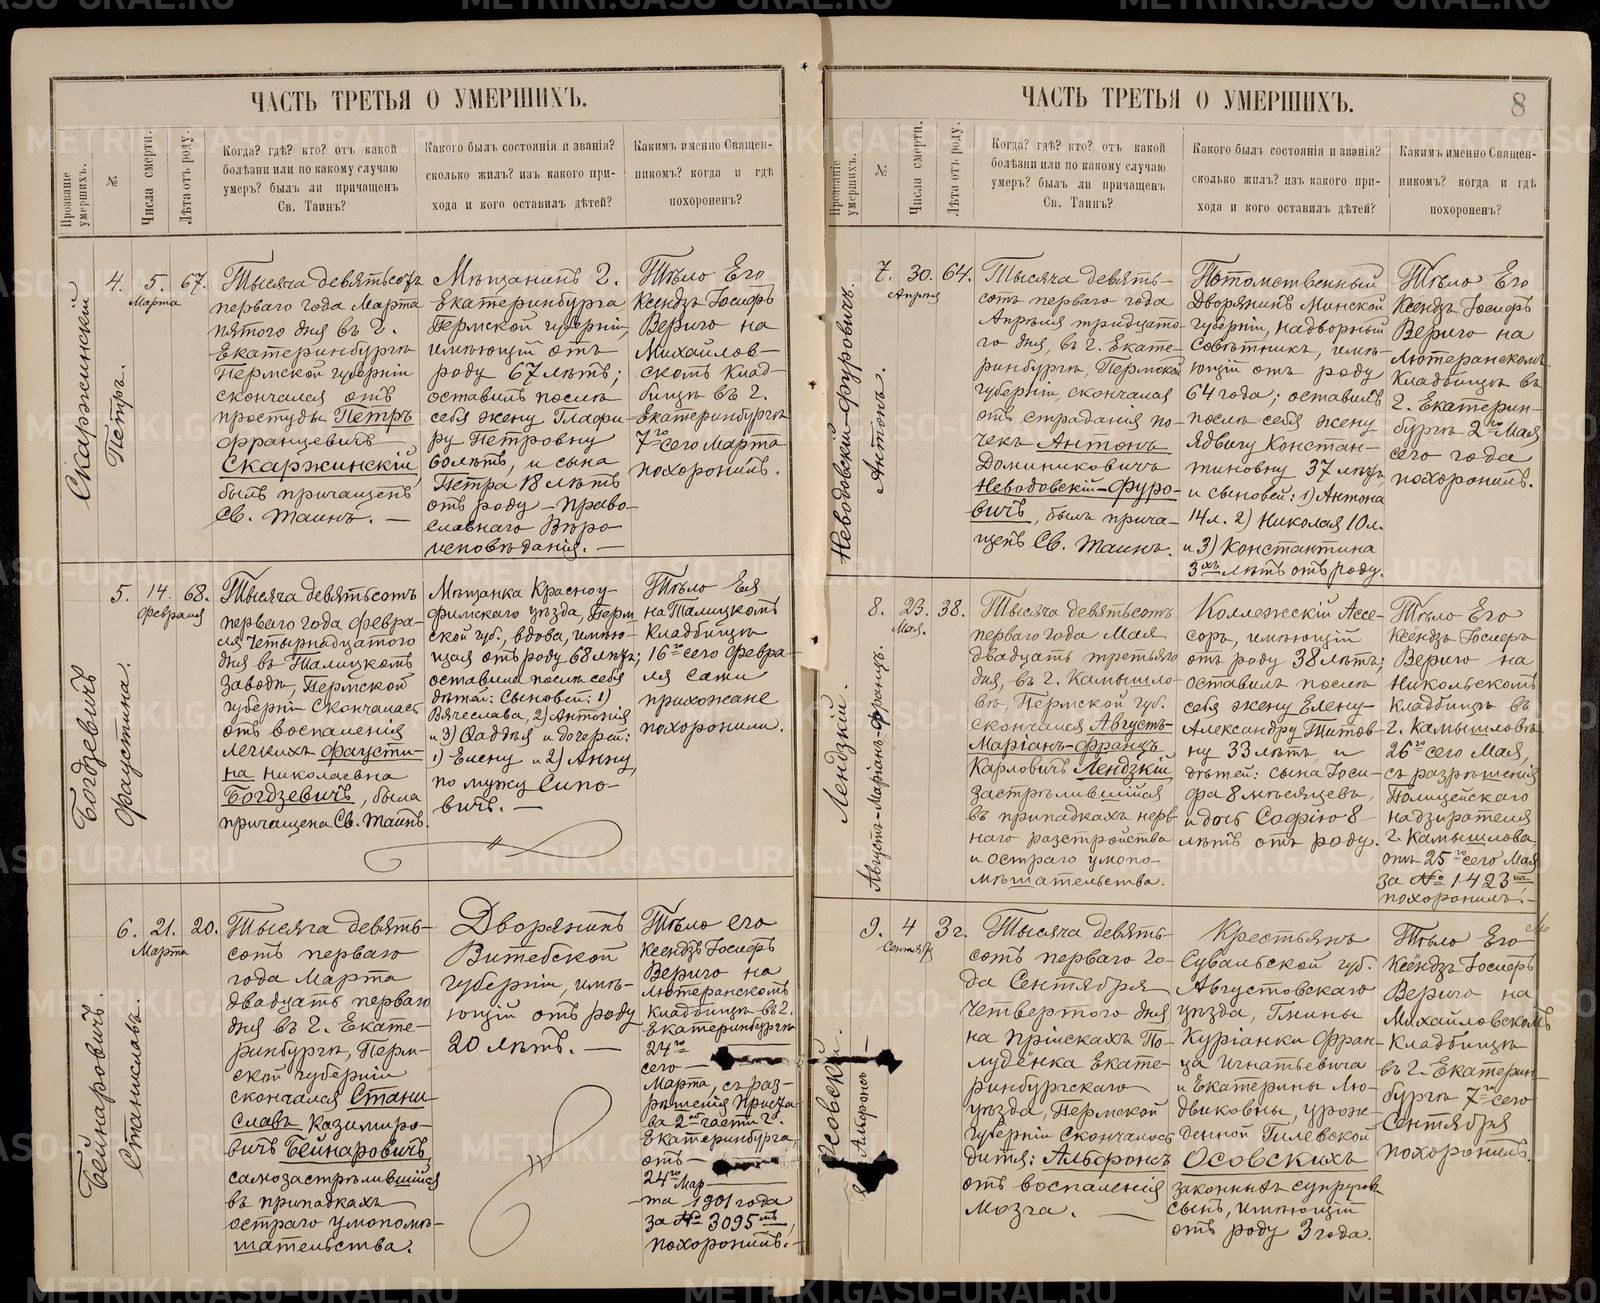 ЧАСТЬ ТРЕТЬЯ О УМЕРШИХЪ.
Прозваніе умершихъ.
№
Числа смерти.
Лѣта отъ роду.
Когда? гдѣ? кто? отъ какой
болѣзни или по какому случаю
умеръ? былъ ли причащенъ
Св. Таинъ?
Какого былъ состоянія и званія?
сколько жилъ? изъ какого при-
хода и кого оставилъ дѣтей?
Какимъ именно Священ-
никомъ? когда и гдѣ
похороненъ?
Скаржинскій
Петръ.
4.
5.
Марта
67.
Тысяча девятьсотъ
перваго года Марта
пятого дня въ г.
Екатеринбургѣ
Пермской губерніи
скончался отъ
простуды Петръ
Францевичъ
Скаржинскій,
бытъ причащенъ
Св. Таинъ. —
Мѣщанинъ г.
Екатеринбурга
Пермской губерніи,
имѣющій отъ
роду 67 лѣтъ;
оставилъ послѣ
себя жену Глафи-
ру Петровну
60 лѣтъ, и сына
Петра 18 лѣтъ
отъ роду — Право-
славнаго Вѣро-
исповѣданія. —
Тѣло Его
Ксендзъ Іосифъ
Вериго на
Михайлов-
скомъ Клад-
бищѣ въ г.
Екатеринбургѣ
7го сего Марта
похоронилъ.
Богдзевичъ
Фаустина.
5.
14.
Февраля
68.
Тысяча девятьсотъ
перваго года Февра-
ля Четырнадцатого
дня въ Талицкомъ
заводѣ, Пермской
губерніи Скончалась
отъ воспаленія
легкихъ Фаусти-
на Николаевна
Богдзевичъ, была
причащена Св. Таинъ.
Мѣщанка Красноу-
фимскаго уѣзда, Перм
ской губ., вдова, имѣю-
щая отъ роду 68 лѣтъ;
оставила послѣ себя
дѣтей: Сыновей: 1)
Вячеслава, 2) Антонія
и 3) Ѳаддѣя и дочерей:
1) Елену и 2) Анну,
по мужу Сипо-
вичъ. —
Тѣло Ея
на Талицкомъ
Кладбищѣ
16го сего Февра-
ля сами
прихожане
похоронили.
Бейнаровичъ.
Станиславъ.
6.
21.
Марта
20.
Тысяча девять-
сотъ перваго
года Марта
двадцать перваго
дня въ г. Екате-
ринбургѣ, Перм-
ской губерніи
скончался Стани-
славъ Казимиро-
вичъ Бейнаровичъ,
самозастрѣлившійся
въ припадкахъ
остраго умопомѣ-
шательства.
Дворянинъ
Витебской
губерніи, имѣ-
ющій отъ роду
20 лѣтъ. —
Тѣло его
Ксендзъ Іосифъ
Вериго на
Лютеранскомъ
Кладбищѣ въ г.
Екатеринбургѣ
24го
сего —
Марта, съ раз-
рѣшенія Приста-
ва 2ой части г.
Екатеринбурга,
отъ —
24го Мар
та 1901 года
за № 3095мъ,
похоронилъ. —
ЧАСТЬ ТРЕТЬЯ О УМЕРШИХЪ.
8
Прозваніе умершихъ.
№
Числа смерти.
Лѣта отъ роду.
Когда? гдѣ? кто? отъ какой
болѣзни или по какому случаю
умеръ? былъ ли причащенъ
Св. Таинъ?
Какого былъ состоянія и званія?
сколько жилъ? изъ какого при-
хода и кого оставилъ дѣтей?
Какимъ именно Священ-
никомъ? когда и гдѣ
похороненъ?
Неводовскій-Фуровичъ.
Антонъ.
7.
30.
Апрѣля
64.
Тысяча девять-
сотъ перваго года
Апрѣля тридцато-
го дня, въ г. Екате-
ринбургѣ, Пермской
губерніи, скончался
отъ страданія по-
чекъ Антонъ
Доминиковичъ
Неводовскій-Фуро-
вичъ, былъ прича-
щенъ Св. Таинъ.
Потомственный
Дворянинъ Минской
губерніи, надворный
Совѣтникъ, имѣ-
ющій отъ роду
64 года; оставилъ
послѣ себя жену
Ядвигу Констан-
тиновну 37 лѣтъ,
и сыновей: 1) Антона
14 л. 2) Николая 10 л.
и 3) Константина
3хъ лѣтъ отъ роду.
Тѣло Его
Ксендзъ Іосифъ
Вериго на
Лютеранскомъ
Кладбищѣ въ
г. Екатерин-
бургѣ 2го Мая
сего года
похоронилъ.
Лендзкій.
Августъ-Маріанъ-Францъ.
8.
23.
Мая.
38.
Тысяча девятьсотъ
перваго года Мая
двадцать третьяго
дня, въ г. Камышло-
вѣ, Пермской губ.
скончался Августъ-
Маріанъ-Францъ
Карловичъ Лендзкій
застрѣлившійся
въ припадкахъ нерв-
наго разстройства
и остраго умопо-
мѣшательства.
Коллежскій Ассе-
соръ, имѣющій
отъ роду 38 лѣтъ;
оставилъ послѣ
себя жену Елену-
Александру Титов-
ну 33 лѣтъ и
дѣтей: сына Іоси-
фа 8 мѣсяцевъ,
и дочь Софію 8
лѣтъ отъ роду.
Тѣло Его
Ксендзъ Іосифъ
Вериго на
Никольскомъ
Кладбищѣ въ
г. Камышловѣ
26го сего Мая,
съ разрѣшенія
Полицейскаго
надзирателя
г. Камышлова
отъ 25го сего Мая
за № 1423мъ,
похоронилъ. —
Осовскій.
Альфонсъ
9.
4
Сентяб.
3 г.
Тысяча девять-
сотъ перваго го-
да Сентября
Четвертого дня
на пріискахъ По-
лудёнка Екате-
ринбургскаго
уѣзда, Пермской
губерніи Скончалось
дитя: Альфонсъ
отъ воспаленія
мозга. —
Крестьянъ
Сувальской губ.
Августовскаго
уѣзда, Гмины
Куріанки Фран-
ца Игнатьевича
и Екатерины Лю-
двиковны, урож-
денной Гилевской
Осовскихъ
законныхъ супруговъ
сынъ, имѣющій
отъ роду 3 года.
Тѣло Его
Ксёндзъ Іосифъ
Вериго на
Михайловскомъ
Кладбищѣ
въ г. Екатерин-
бургѣ 7го сего
Сентября
похоронилъ.
METRIKI.GASO-URAL.RU